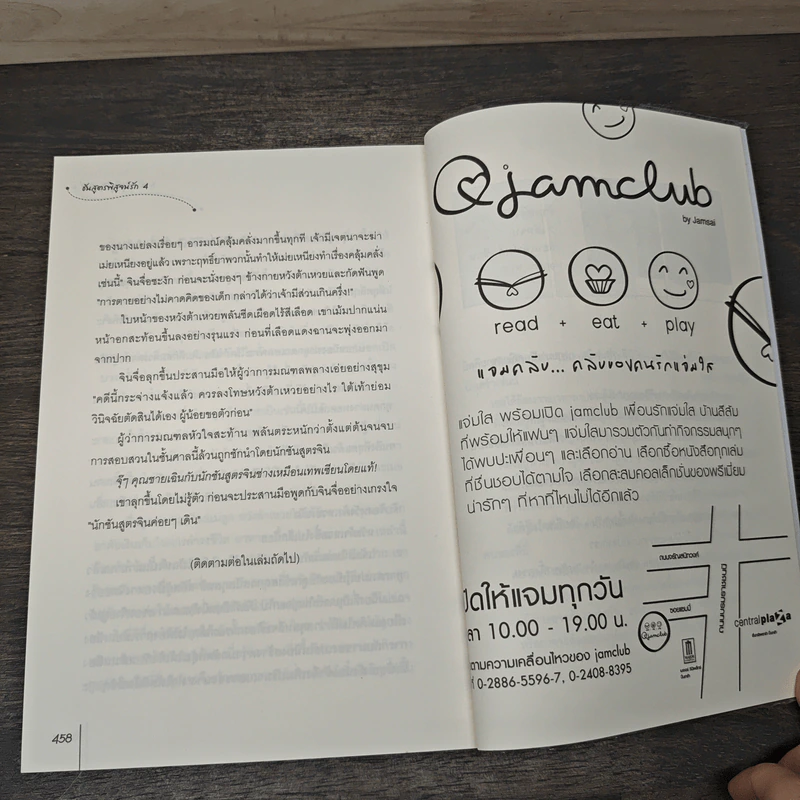 ชันสูตรพิสูจน์รัก 4
ของนางแย่ลงเรื่อยๆ อารมณ์คลุ้มคลั่งมากขึ้นทุกที เจ้ามีเจตนาจะฆ่า
เม่ยเหนียงอยู่แล้ว เพราะฤทธิ์ยาพวกนั้นทำให้เม่ยเหนียงทำเรื่องคลุ้มคลั่ง
เช่นนี้" จินจื่อชะงัก ก่อนจะนั่งยองๆ ข้างกายหวังต้าเหวยและกัดฟันพูด
"การตายอย่างไม่คาดคิดของเด็ก กล่าวได้ว่าเจ้ามีส่วนเกินครึ่ง!"
ใบหน้าของหวังต้าเหวยพลันซีดเผือดไร้สีเลือด เขาเม้มปากแน่น
หน้าอกสะท้อนขึ้นลงอย่างรุนแรง ก่อนที่เลือดแดงฉานจะพุ่งออกมา
จากปาก
จินจื่อลุกขึ้นประสานมือให้ผู้ว่าการมณฑลพลางเอ่ยอย่างสุขุม
"คดีนี้กระจ่างแจ้งแล้ว ควรลงโทษหวังต้าเหวยอย่างไร ใต้เท้าย่อม
วินิจฉัยตัดสินได้เอง ผู้น้อยขอตัวก่อน"
ผู้ว่าการมณฑลหัวใจสะท้าน พลันตระหนักว่าตั้งแต่ต้นจนจบ
การสอบสวนในชั้นศาลนี้ล้วนถูกชักนำโดยนักชันสูตรจิน
จุ๊ๆ คุณชายเฉินกับนักชันสูตรจินช่างเหมือนเทพเซียนโดยแท้!
เขาลุกขึ้นโดยไม่รู้ตัว ก่อนจะประสานมือพูดกับจินจื่ออย่างเกรงใจ
"นักชันสูตรจินค่อยๆ เดิน"
(ติดตามต่อในเล่มถัดไป)
458
@jamclub
by Jamsai
read + eat + play
แจมคลับ... คลับของคนรักแจ่มใส
แจ่มใส พร้อมเปิด jamclub เพื่อนรักแจ่มใส บ้านสีส้ม
ที่พร้อมให้แฟนๆ แจ่มใสมารวมตัวกันทำกิจกรรมสนุกๆ
ได้พบปะเพื่อนๆ และเลือกอ่าน เลือกซื้อหนังสือทุกเล่ม
ที่ชื่นชอบได้ตามใจ เลือกสะสมคอลเล็กชั่นของพรีเมี่ยม
น่ารักๆ ที่หาที่ไหนไม่ได้อีกแล้ว
ปิดให้แจมทุกวัน
ลา 10.00 - 19.00 น.
ตามความเคลื่อนไหวของ jamclub
ที่ 0-2886-5596-7, 0-2408-8395
ถนนจรัญสนิทวงศ์
ซอยแฮมมี่
ถนนบรมราชชนนี
@jamclub
centralplaza